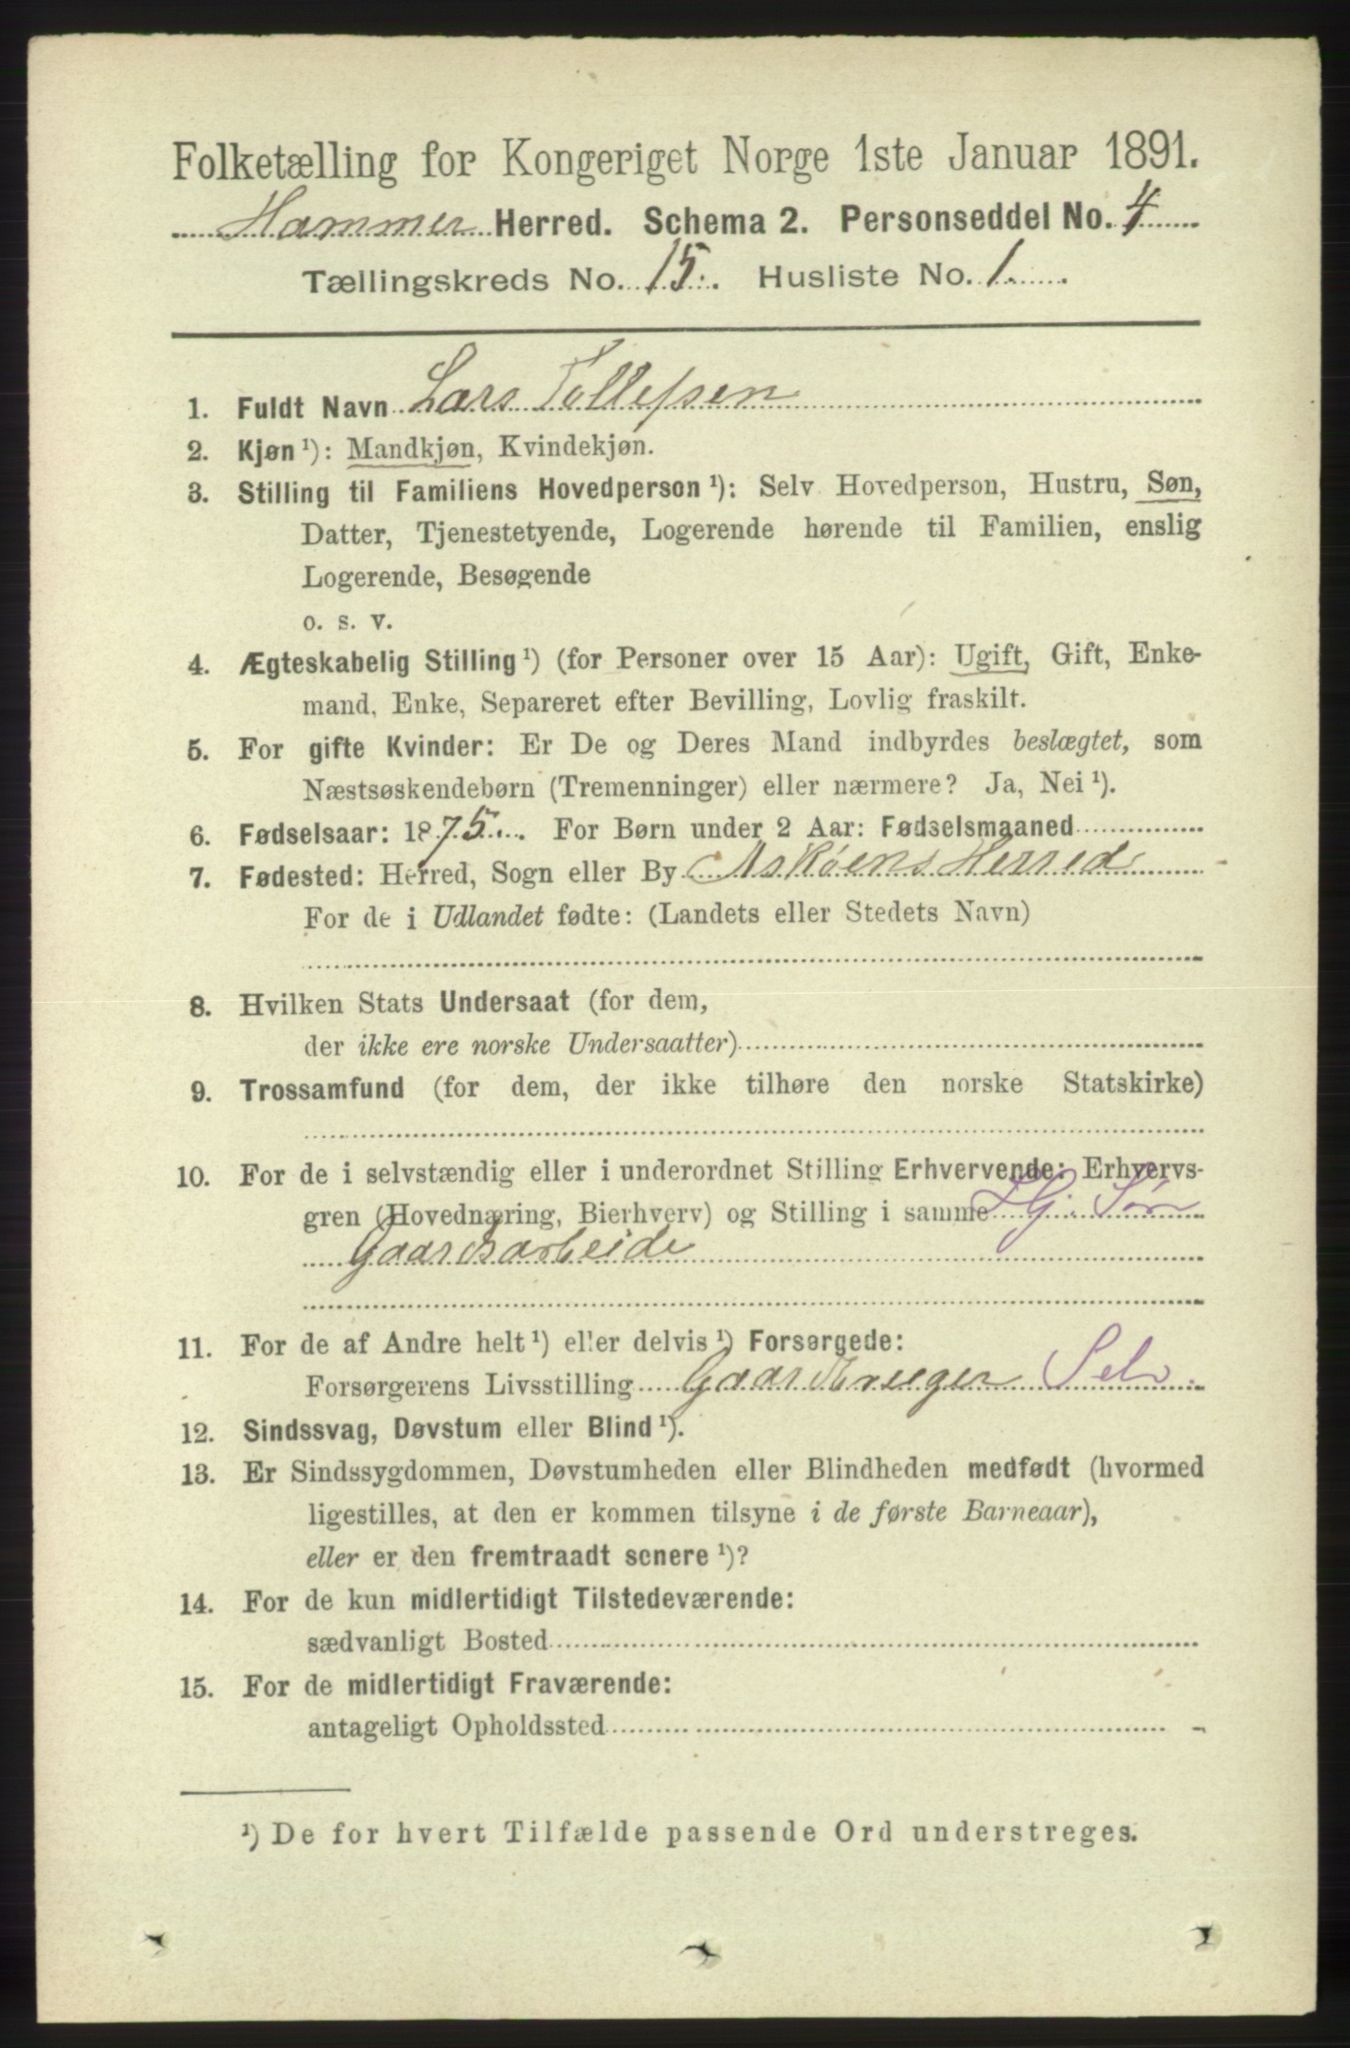 Folketælling for Kongeriget Norge 1ste Januar 1891.
Hammer Herred. Schema 2. Personseddel No. 4
Tællingskreds No. 15. Husliste No. 1.
1. Fuldt Navn Lars Tollefsen
2. Kjøn ¹): Mandkjøn, Kvindekjøn.
3. Stilling til Familiens Hovedperson ¹): Selv Hovedperson, Hustru, Søn,
Datter, Tjenestetyende, Logerende hørende til Familien, enslig
Logerende, Besøgende
o. s. v.
4. Ægteskabelig Stilling ¹) (for Personer over 15 Aar): Ugift, Gift, Enke-
mand, Enke, Separeret efter Bevilling, Lovlig fraskilt.
5. For gifte Kvinder: Er De og Deres Mand indbyrdes beslægtet, som
Næstsøskendebørn (Tremenninger) eller nærmere? Ja, Nei ¹).
6. Fødselsaar: 1875. For Børn under 2 Aar: Fødselsmaaned
7. Fødested: Herred, Sogn eller By Askøens Herred
For de i Udlandet fødte: (Landets eller Stedets Navn)
8. Hvilken Stats Undersaat (for dem,
der ikke ere norske Undersaatter)
9. Trossamfund (for dem, der ikke tilhøre den norske Statskirke)
10. For de i selvstændig eller i underordnet Stilling Erhvervende: Erhvervs-
gren (Hovednæring, Bierhverv) og Stilling i samme Søn
Gaardsarbeide
11. For de af Andre helt ¹) eller delvis ¹) Forsørgede:
Forsørgerens Livsstilling Gaardbruger Selv.
12. Sindssvag, Døvstum eller Blind ¹).
13. Er Sindssygdommen, Døvstumheden eller Blindheden medfødt (hvormed
ligestilles, at den er kommen tilsyne i de første Barneaar),
eller er den fremtraadt senere ¹)?
14. For de kun midlertidigt Tilstedeværende:
sædvanligt Bosted
15. For de midlertidigt Fraværende:
antageligt Opholdssted
¹) De for hvert Tilfælde passende Ord understreges.